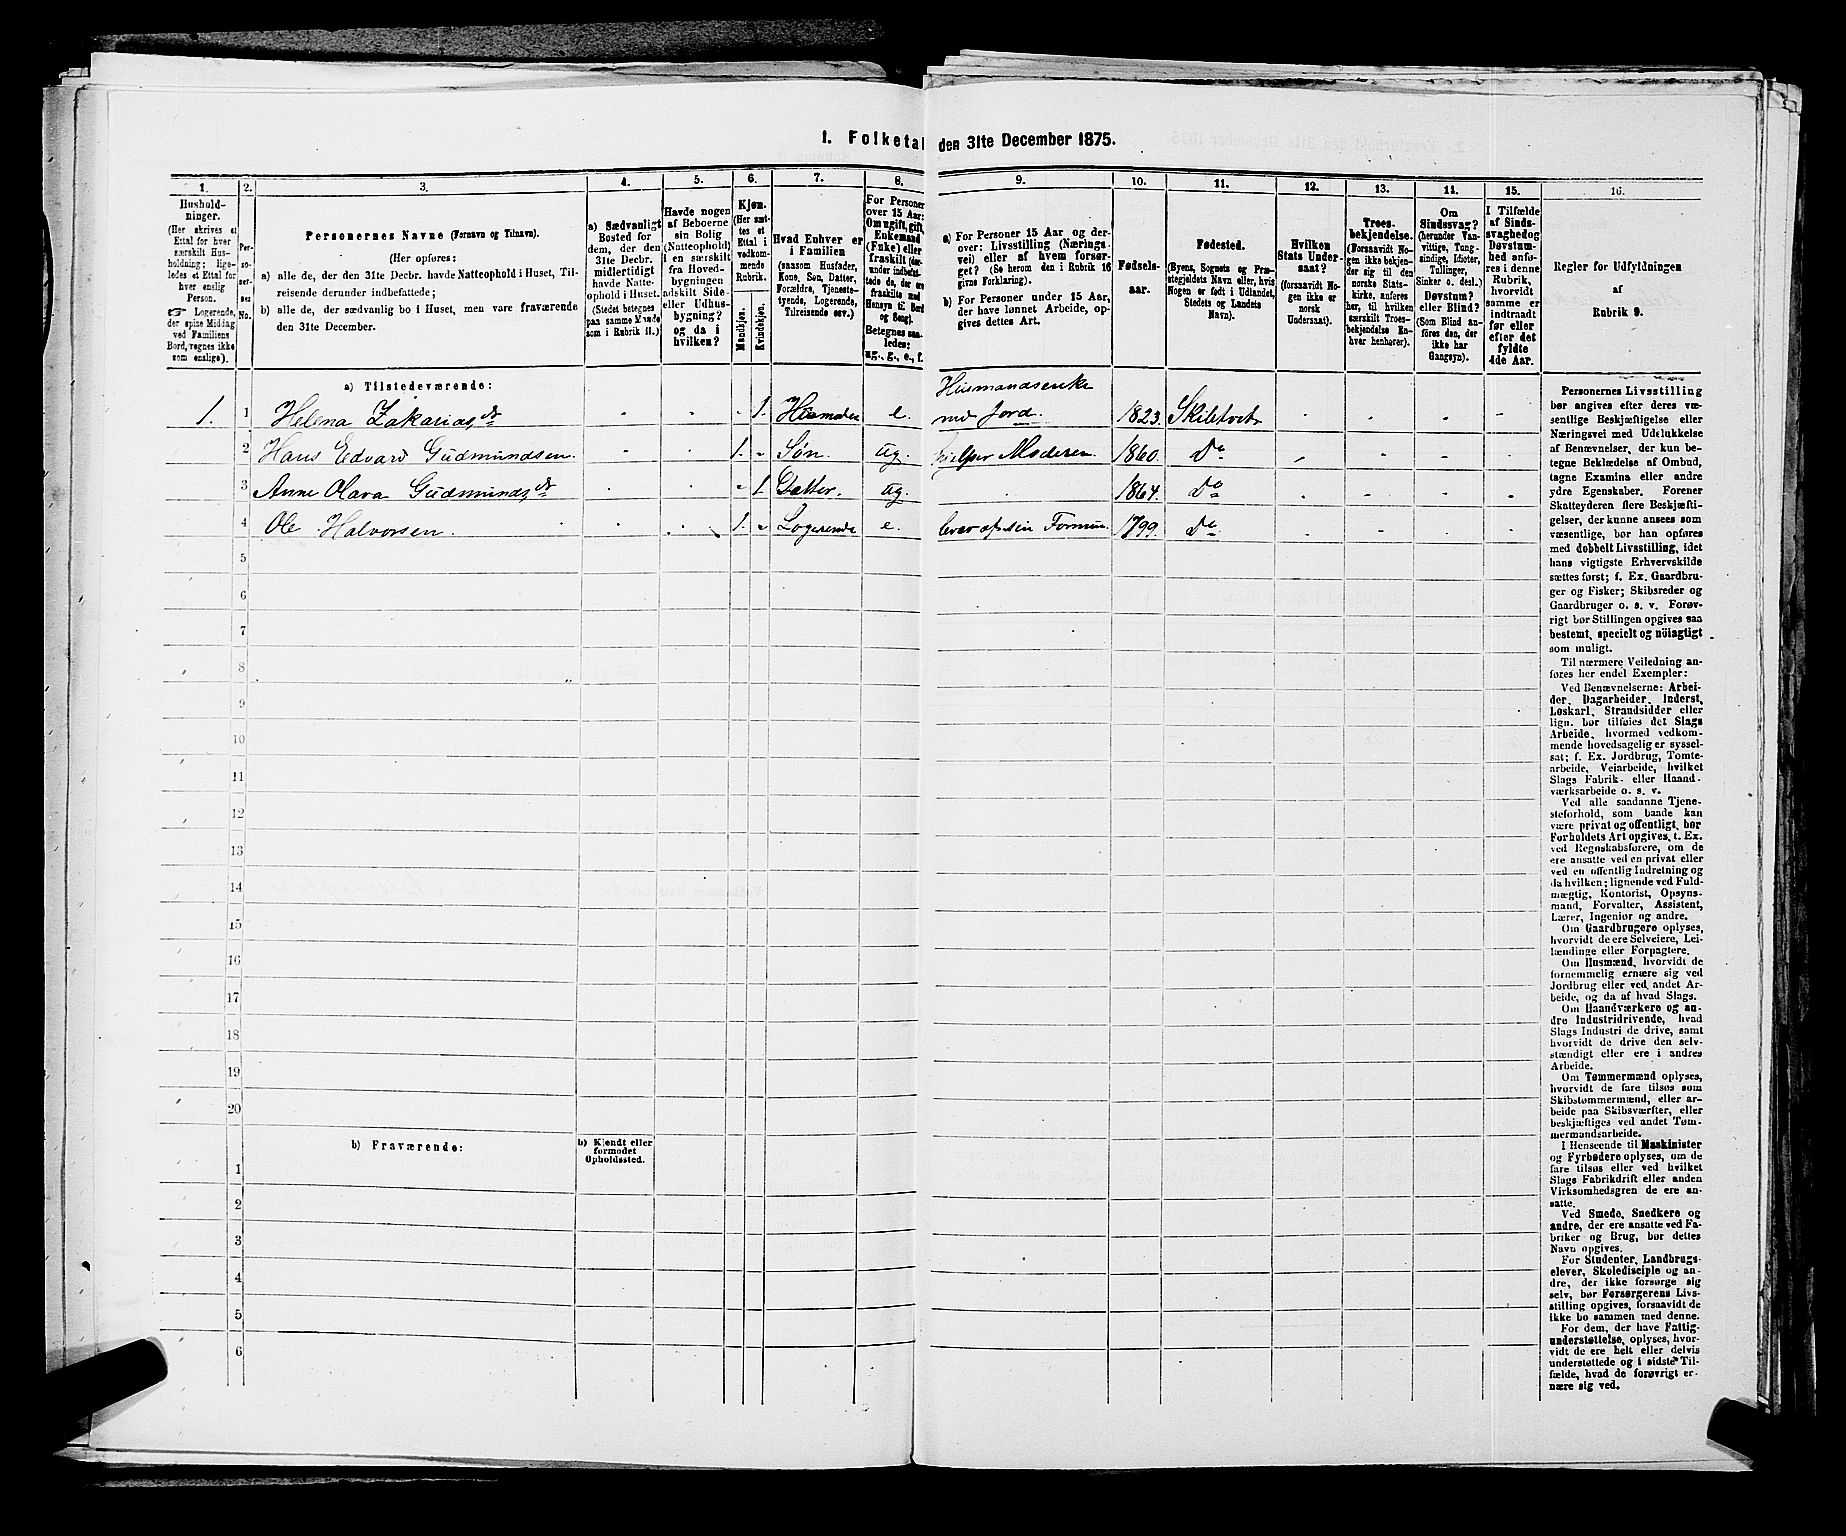 1. Folketal den 31te December 1875.
1.
2.
3.
4.
5.
6.
7.
8.
9.
10.
11.
12.
13.
14.
15.
16.
Hushold-
ninger.
(Her skrives et
Ettal for hver
særskilt Hus-
holdning; lige-
ledes et Ettal for
hver enslig
Person.
☞ Logerende,
der spise Middag
ved Familiens
Bord, regnes ikke
som enslige).
Per-
so-
ner-
nes
No.
Personernes Navne (Fornavn og Tilnavn).
(Her opføres:
a) alle de, der den 31te Decbr. havde Natteophold i Huset, Til-
reisende derunder indbefattede;
b) alle de, der sædvanlig bo i Huset, men vare fraværende
den 31te December.
a) Sædvanligt
Bosted for
dem, der den
31te Decbr.
midlertidigt
havde Natte-
ophold i Huset.
(Stedet betegnes
paa samme Maade
som i Rubrik 11.)
Havde nogen
af Beboerne
sin Bolig
(Natteophold)
i en særskilt
fra Hoved-
bygningen
adskilt Side-
eller Udhus-
bygning?
og da i
hvilken?
Kjøn.
(Her sæt-
tes et
Ettal i
vedkom-
mende
Rubrik.
Mandkjøn.
Kvindekjøn.
Hvad Enhver er
i Familien
(saasom Husfader,
Kone, Søn, Datter,
Forældre, Tjeneste-
tyende, Logerende,
Tilreisende osv.)
For Personer
over 15 Aar:
Om ugift, gift,
Enkemand
(Enke) eller
fraskilt (der-
under indbefat-
tede de, der ere
fraskilte med
Hensyn til Bord
og Seng).
Betegnes saa-
ledes:
ug., g., e., f.
a) For Personer 15 Aar og der-
over: Livsstilling (Nærings-
vei) eller af hvem forsør-
get? (Se herom den i Rubrik 16
givne Forklaring).
b) For Personer under 15 Aar,
der have lønnet Arbeide, op-
gives dettes Art.
Fødsels-
aar.
Fødested.
(Byens, Sognets og Præ-
stegjeldets Navn eller, hvis
Nogen er født i Udlandet,
Stedets og Landets
Navn).
Hvilken
Stats Under-
saat?
(forsaavidt No-
gen ikke er
norsk
Undersaat).
Troes-
bekjendelse.
(Forsaavidt No-
gen ikke bekjen-
der sig til den
norske Stats-
kirke, anføres
her, til hvilken
særskilt Troes-
bekjendelse En-
hver henhører).
Om
Sindssvag?
(herunder Van-
vittige, Tung-
sindige, Idioter,
Tullinger,
Sinker o. desl.)
Døvstum?
eller Blind?
(Som Blind an-
føres den, der
ikke har
Gangsyn).
I Tilfælde
af Sinds-
svaghed og
Døvstum-
hed anfø-
res i denne
Rubrik,
hvorvidt
samme er
indtraadt
før eller
efter det
fyldte
4de Aar.
Regler for Udfyldningen
af
Rubrik 9.
a) Tilstedeværende:
1. 1 Helena Zakariasdr - - - 1. Husmoder e. Husmandsenke
med Jord. 1823. Skibtvet - - - -
2 Hans Edvard Gudmundsen. - - 1. - Søn. ug. hjelper Moderen. 1860. Do - - - -
3 Anne Olava Gudmundsdr - - - 1. Datter. ug. - 1864. Do - - - -
4 Ole Halvorsen. - - 1. - Logerende e. lever af sin Formue. 1799. Do - - - -
5
6
7
8
9
10
11
12
13
14
15
16
17
18
19
20
b) Fraværende:
b) Kjendt eller
formodet
Opholdssted.
1
2
3
4
5
6
Personernes Livsstilling
bør angives efter deres væ-
sentlige Beskjæftigelse eller
Næringsvei med Udelukkelse
af Benævnelser, der kun be-
tegne Beklædelse af Ombud,
tagne Examina eller andre
ydre Egenskaber. Forener
Skatteyderen flere Beskjæfti-
gelser, der kunne ansees som
væsentlige, bør han opføres
med dobbelt Livsstilling, idet
hans vigtigste Erhvervskilde
sættes først; f. Ex. Gaardbru-
ger og Fisker; Skibsreder og
Gaardbruger o. s. v. Forøv-
rigt bør Stillingen opgives saa
bestemt, specielt og nöiagtigt
som muligt.
Til nærmere Veiledning an-
føres her endel Exempler:
Ved Benævnelserne: Arbei-
der, Dagarbeider, Inderst,
Løskarl, Strandsidder eller
lign. bør tilføies det Slags
Arbeide, hvormed vedkom-
mende hovedsagelig er syssel-
sat; f. Ex. Jordbrug, Tomte-
arbeide, Veiarbeide, hvilket
Slags Fabrik- eller Haand-
værksarbeide o. s. v.
Ved alle saadanne Tjene-
steforhold, som baade kan
være privat og offentligt, bør
Forholdets Art opgives, t. Ex.
ved Regnskabsførere, om de
ere ansatte ved en privat eller
ved en offentlig Indretning og
da hvilken; lignende ved Fuld-
mægtig, Kontorist, Opsyns-
mand, Forvalter, Assistent,
Lærer, Ingeniør og andre.
Om Gaardbrugere oplyses,
hvorvidt de ere Selveiere, Lei-
lændinge eller Forpagtere.
Om Husmænd, hvorvidt de
fornemmelig ernære sig ved
Jordbrug eller ved andet Ar-
beide, og da af hvad Slags.
Om Haandværkere og an-
dre Industridrivende, hvad
Slags Industri de drive, samt
hvorvidt de drive den selv-
stændigt eller ere i andres
Arbeide.
Om Tømmermænd oplyses,
hvorvidt de fare tilsøs som
Skibstømmermænd, eller ar-
beide paa Skibsværfter, eller
beskjæftiges ved andet Tøm-
mermandsarbeide.
I Henseende til Maskinister
og Fyrbødere oplyses, om de
fare tilsøs eller ved hvilket
Slags Fabrikdrift eller anden
Virksomhedsgren de ere an-
satte.
Ved Smede, Snedkere og
andre, der ere ansatte ved Fa-
briker og Brug, bør dettes
Navn opgives.
For Studenter, Landbrugs-
elever, Skoledisciple og an-
dre, der ikke forsørge sig
selv, bør Forsørgerens Livs-
stilling opgives, forsaavidt de
ikke bo sammen med denne.
For dem, der have Fattig-
understøttelse, oplyses, hvor-
vidt de ere helt eller delvis
understøttede og i sidste Til-
fælde, hvad de forøvrigt er-
nære sig ved.